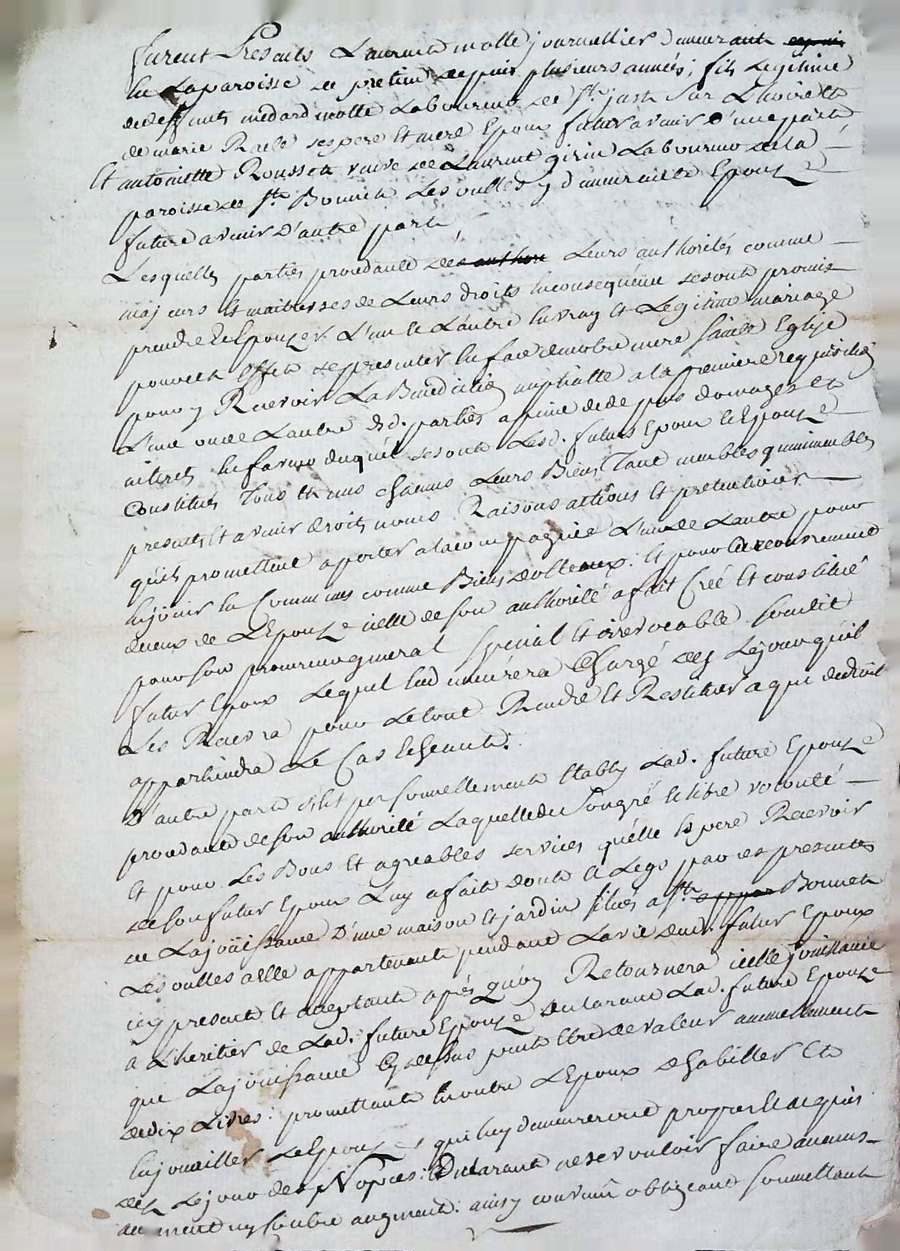 furent Presents Laurent molle journallier demeurant
en la paroisse de pretieu depuis plusieurs années, fils Legitime
de deffunts medard molle Laboureur de St. just sur Lhoire et
de marie Raele ses pere et mere Epoux futur avenir d'une part
Et antoinette Rousset veuve de Laurent girin Laboureur de la
paroisse de St. Bonnet Les oulles y demeurante Epouze
future avenir d'autre part,
Lesquelles parties procedants de Leurs authorités comme
majeurs et maitresses de Leurs droits en consequence se sont promis
prendre et Epouzer L'un et L'autre en vray et Legitime mariage
pour cet effet se presenter en face de notre mere sainte Eglise
pour y Recevoir La Benediction nuptialle a la premiere requisition
L'une ou de L'autre desd. parties a peine de depens domages et
interets en faveur duquel se sont Lesd. futurs Epoux et Epouze
constitués Tous et uns chacuns Leurs Biens Tant meubles qu'immeubles
presents et avenir droits noms Raisons actions et pretentions
qu'ils promettent aporter a la compagnie L'un de L'autre pour
en jouir en Communs comme Biens dotteaux: Et pour le recouvrement
de ceux de L'Epouze icelle de son authorité a fait Créé et constitué
pour son procureur general special et irrevocable sondit
futur Epoux Lequel en demeurera Chargé des Le jour quil
Les Recevra pour Le tout Rendre et Restituer a qui de droit
appartiendra Le Cas echeant.
D'autre part s'est personnellement Etably Lad. future Epouze
procedante de son authorité Laquelle du son gré et libre volonté
Et pour Les Bons et agreables services qu'elle espere Recevoir
de son futur Epoux Luy a fait don et Legs par ces presentes
de La joüissance D'une maison et jardin situés a St. Bonnet
Les oulles a elle appartenante pendant La vie dud. futur Epoux
icy present et aceptant aprés quoy Retournera icelle jouissance
a L'heritier de Lad. future Epouze declarant Lad. future Epouze
que La joüissance Cy dessus peut Etre de valeur annuellement
de dix Livres: promettant en outre L'Epoux d'habiller et
enjouailler L'Epouze, qui luy demeureront propres et acquis
des Le jour des Nopces: Declarant ne se vouloir faire aucuns
augment ny contre augment: ainsy convenu obligeant soumettant